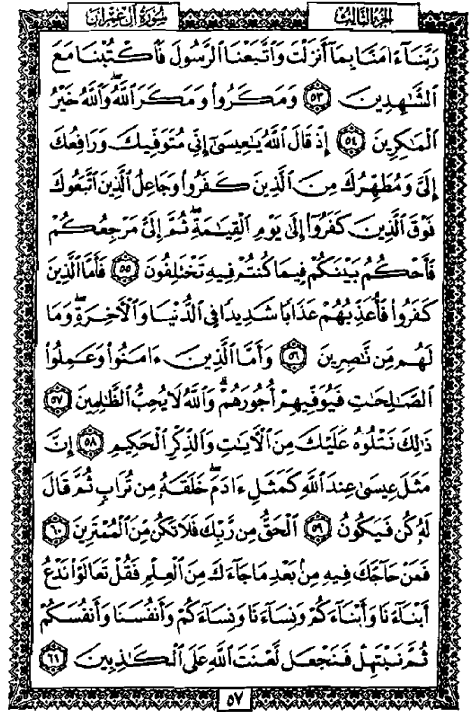 الجزء الثالث
سورة آل عمران
رَبَّنَآ ءَامَنَّا بِمَآ أَنزَلْتَ وَاتَّبَعْنَا الرَّسُولَ فَاكْتُبْنَا مَعَ
الشَّٰهِدِينَ ٥٣ وَمَكَرُوا وَمَكَرَ اللَّهُ وَاللَّهُ خَيْرُ
الْمَٰكِرِينَ ٥٤ إِذْ قَالَ اللَّهُ يَٰعِيسَىٰٓ إِنِّي مُتَوَفِّيكَ وَرَافِعُكَ
إِلَيَّ وَمُطَهِّرُكَ مِنَ الَّذِينَ كَفَرُوا وَجَاعِلُ الَّذِينَ اتَّبَعُوكَ
فَوْقَ الَّذِينَ كَفَرُوٓا إِلَىٰ يَوْمِ الْقِيَٰمَةِ ثُمَّ إِلَيَّ مَرْجِعُكُمْ
فَأَحْكُمُ بَيْنَكُمْ فِيمَا كُنتُمْ فِيهِ تَخْتَلِفُونَ ٥٥ فَأَمَّا الَّذِينَ
كَفَرُوا فَأُعَذِّبُهُمْ عَذَابًا شَدِيدًا فِي الدُّنْيَا وَالْءَاخِرَةِ وَمَا
لَهُم مِّن نَّٰصِرِينَ ٥٦ وَأَمَّا الَّذِينَ ءَامَنُوا وَعَمِلُوا
الصَّٰلِحَٰتِ فَيُوَفِّيهِمْ أُجُورَهُمْ وَاللَّهُ لَا يُحِبُّ الظَّٰلِمِينَ ٥٧
ذَٰلِكَ نَتْلُوهُ عَلَيْكَ مِنَ الْءَايَٰتِ وَالذِّكْرِ الْحَكِيمِ ٥٨ إِنَّ
مَثَلَ عِيسَىٰ عِندَ اللَّهِ كَمَثَلِ ءَادَمَ خَلَقَهُ مِن تُرَابٍ ثُمَّ قَالَ
لَهُ كُن فَيَكُونُ ٥٩ الْحَقُّ مِن رَّبِّكَ فَلَا تَكُن مِّنَ الْمُمْتَرِينَ ٦٠
فَمَنْ حَآجَّكَ فِيهِ مِنۢ بَعْدِ مَا جَآءَكَ مِنَ الْعِلْمِ فَقُلْ تَعَالَوْا نَدْعُ
أَبْنَآءَنَا وَأَبْنَآءَكُمْ وَنِسَآءَنَا وَنِسَآءَكُمْ وَأَنفُسَنَا وَأَنفُسَكُمْ
ثُمَّ نَبْتَهِلْ فَنَجْعَل لَّعْنَتَ اللَّهِ عَلَى الْكَٰذِبِينَ ٦١
٥٧